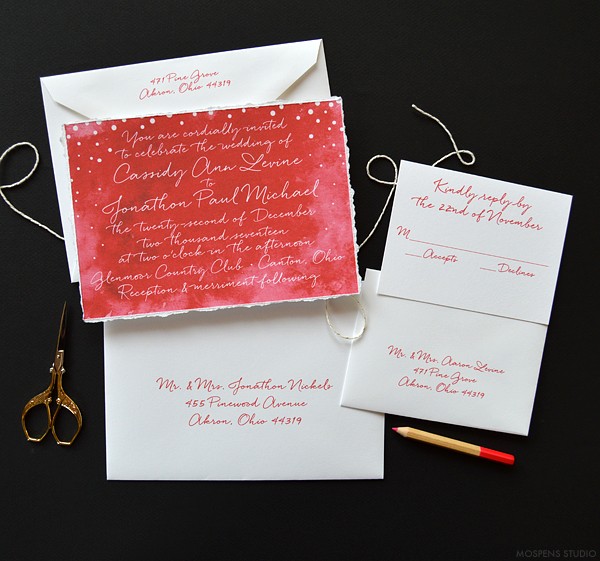 471 Pine Grove
Akron, Ohio 44319
You are cordially invited
to celebrate the wedding of
Cassidy Ann Levine
to
Jonathon Paul Michael
the twenty-second of December
two thousand seventeen
at two o'clock in the afternoon
Glenmoor Country Club · Canton, Ohio
Reception & merriment following
Kindly reply by
the 22nd of November
M
Accepts Declines
Mr. & Mrs. Aaron Levine
471 Pine Grove
Akron, Ohio 44319
Mr. & Mrs. Jonathon Nickels
455 Pinewood Avenue
Akron, Ohio 44319
MOSPENS STUDIO